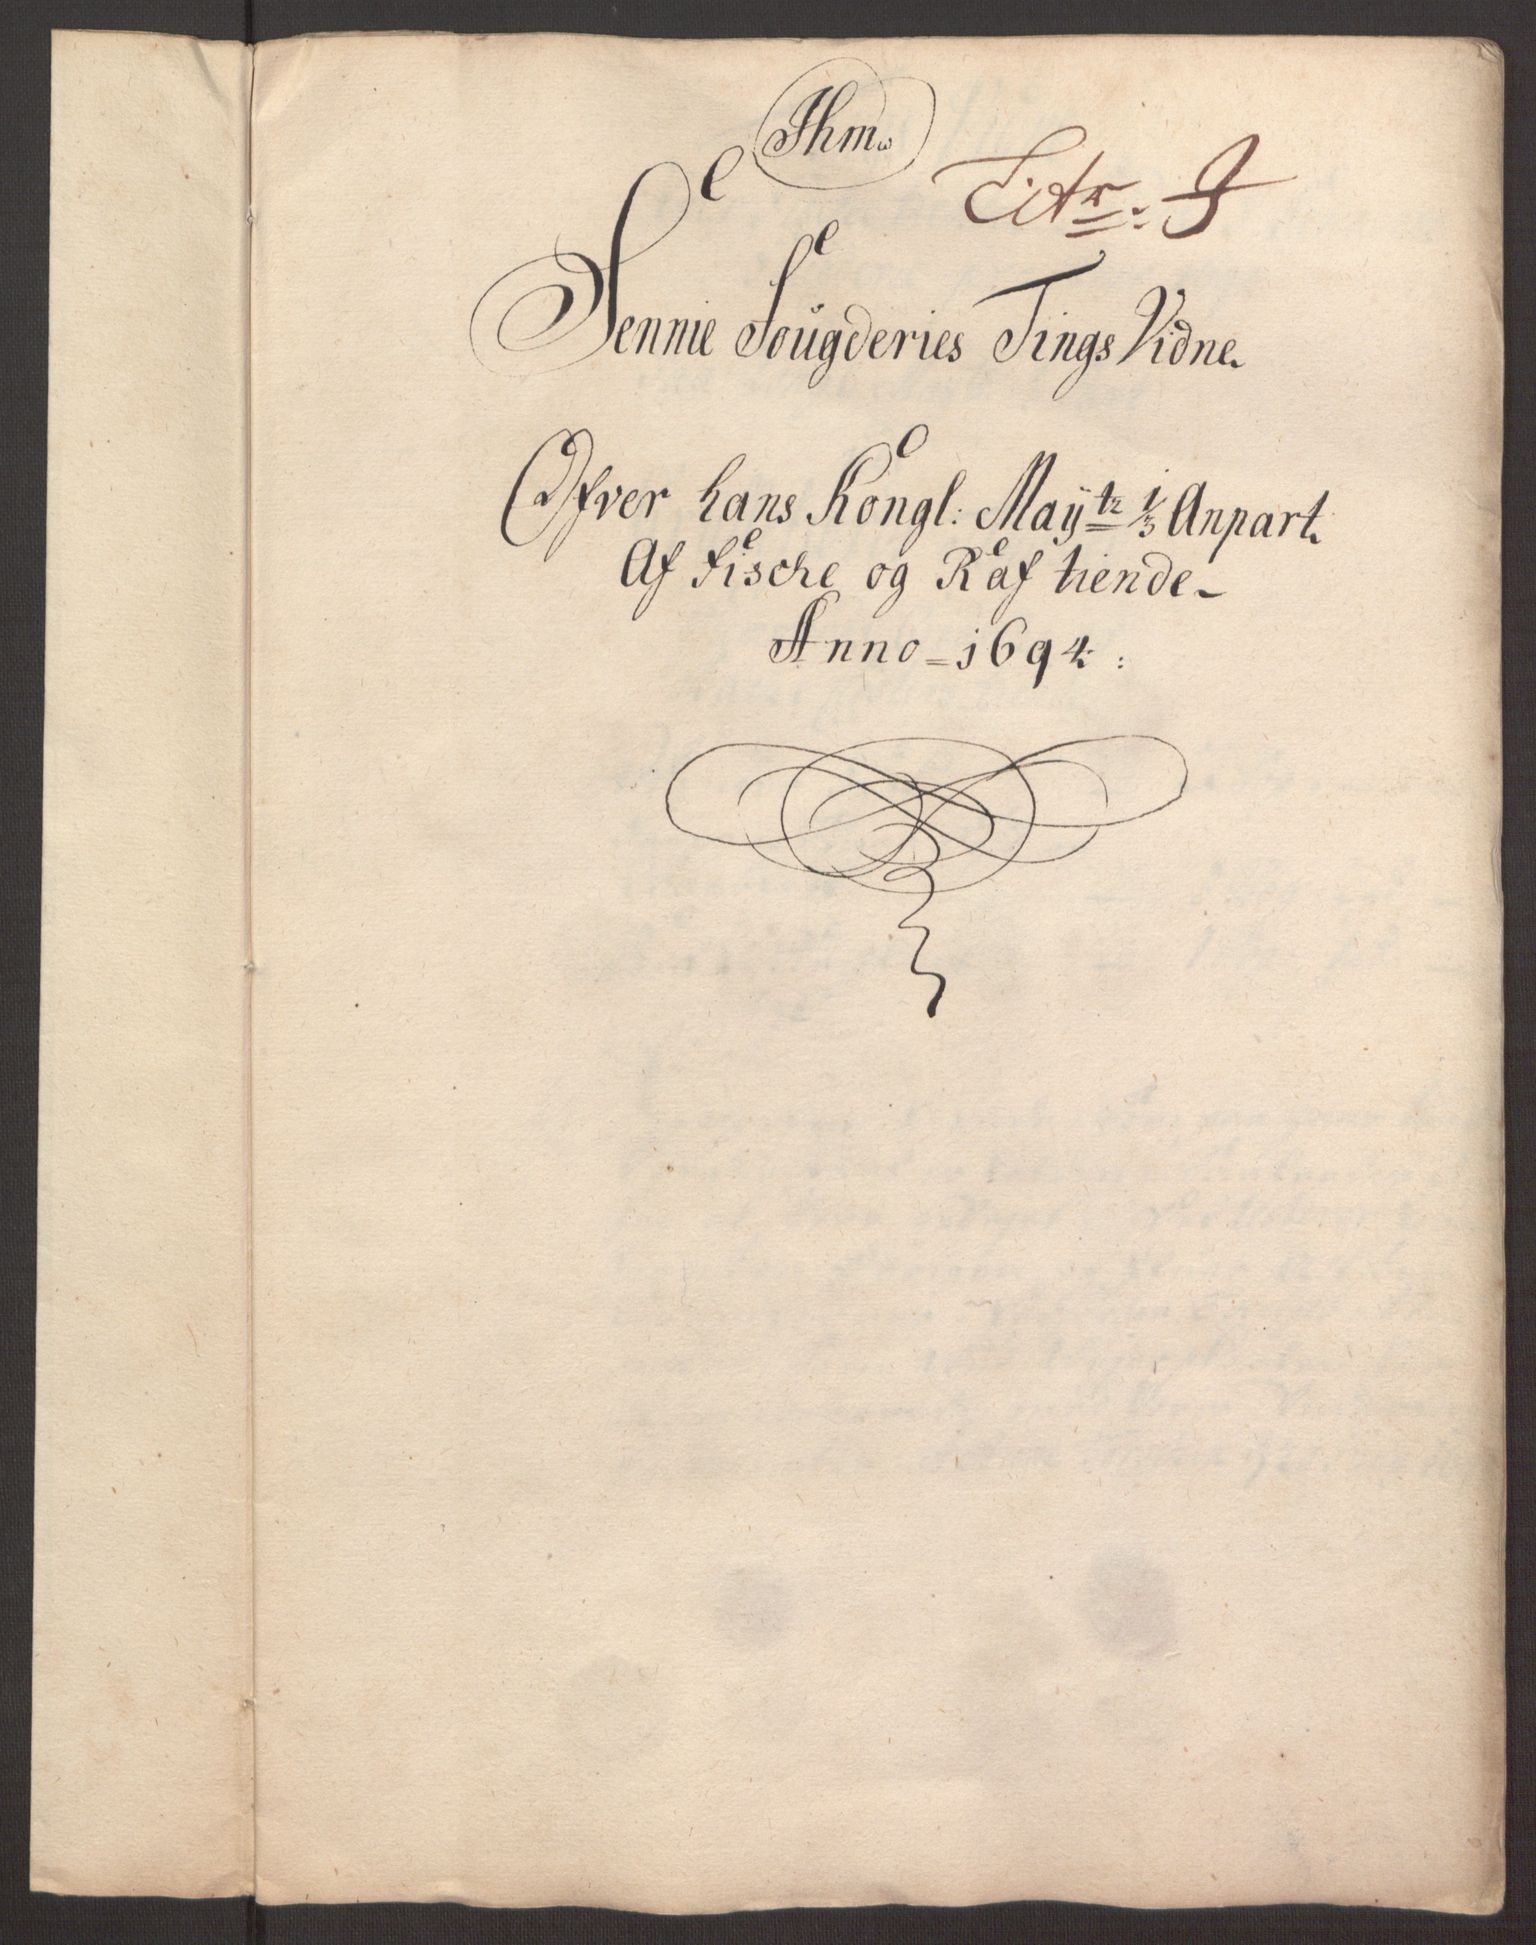 Jhm.
Litr: J
Sennie Fougderies Tings Vidne.
Ofver hans Kongl: Maÿtz 1/3 Anpart
Af fische og Raf tiende
Anno 1694: